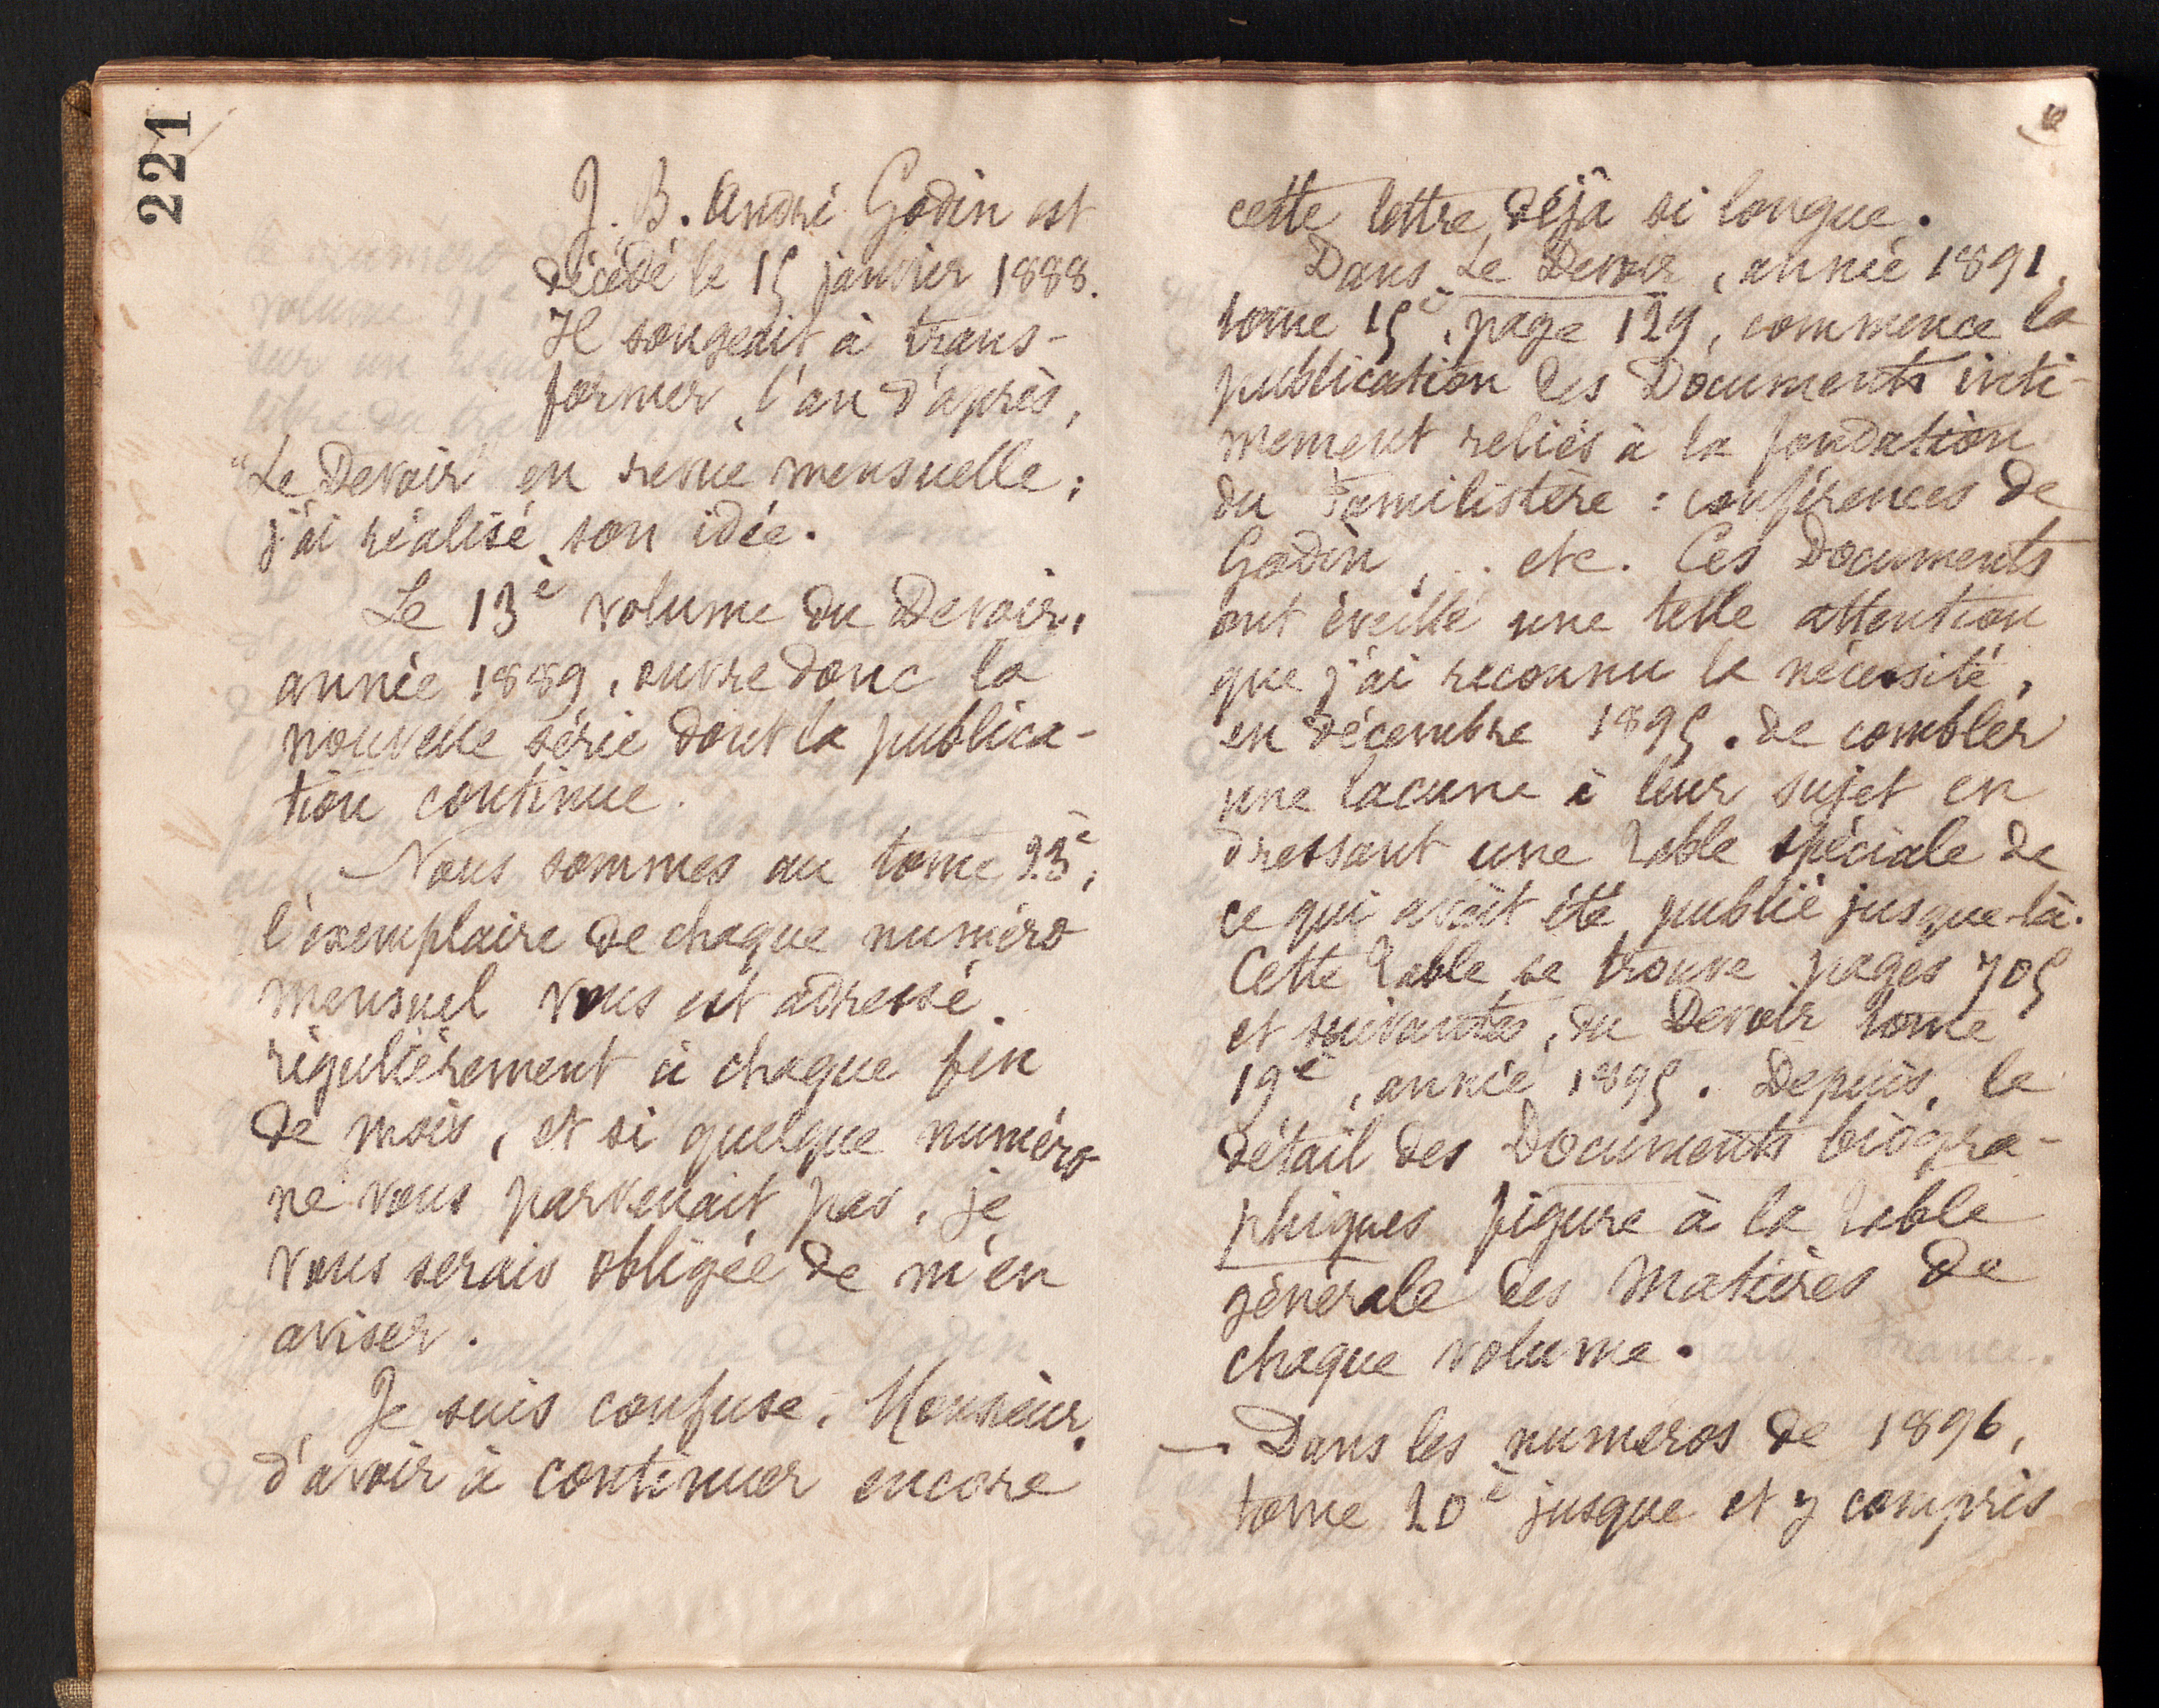 221
J. B. André Godin est
décédé le 15 janvier 1888.
Il songeait à trans-
former, l'an d'après,
"Le Devoir" en revue mensuelle;
j'ai réalisé son idée.
Le 13è volume du Devoir,
année 1889, ouvre donc la
nouvelle série dont la publica-
tion continue.
Nous sommes au tome 23è,
l'exemplaire de chaque numéro
mensuel vous est adressé
régulièrement à chaque fin
de mois, et si quelque numéro
ne vous parvenait pas, je
vous serais obligée de m'en
aviser.
Je suis confuse, Monsieur,
d'avoir à continuer encore
cette lettre déjà si longue.
Dans Le Devoir, année 1891,
tome 15è, page 129, commence la
publication des Documents inti-
mement reliés à la fondation
du Familistère : conférences de
Godin, .. etc. Ces Documents
ont éveillé une telle attention
que j'ai reconnu la nécessité,
en décembre 1895, de combler
une lacune à leur sujet en
dressant une table spéciale de
ce qui avait été publié jusque-là.
Cette table se trouve pages 705
et suivantes, du Devoir tome
19è, année 1895. Depuis, le
détail des Documents biogra-
phiques figure à la table
générale des Matières de
chaque volume.
— Dans les numéros de 1896,
tome 20è jusque et y compris